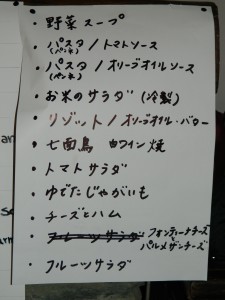 ・野菜スープ
・パスタ/トマトソース
(ペンネ)
・パスタ/オリーブオイルソース
(ペンネ)
・お米のサラダ(冷製)
・リゾット/オリーブオイル・バター
・七面鳥 白ワイン焼
・トマトサラダ
・ゆでたじゃがいも
・チーズとハム
・フルーツサラダ フォンティーナチーズ
パルメザンチーズ
・フルーツサラダ